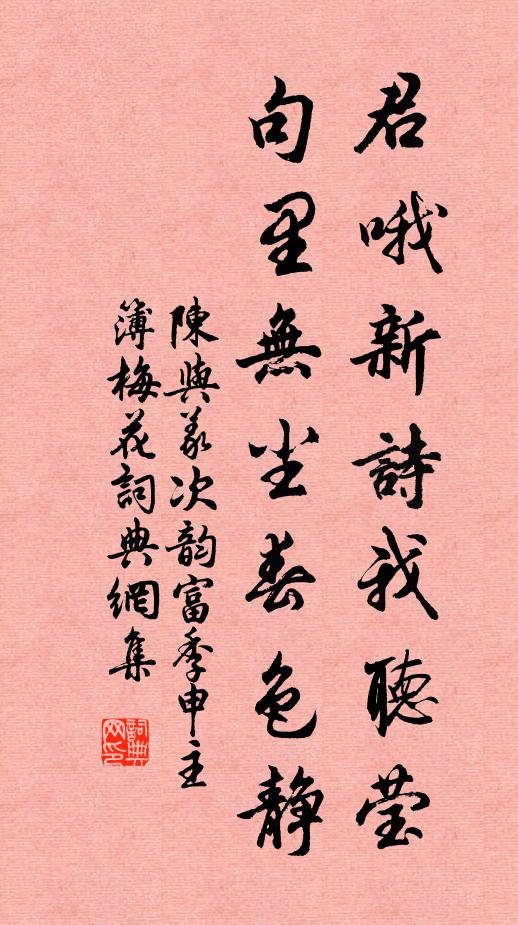 君哦新詩我聽瑩
句里無尘春色静
陳與義次韵富季申主
簿梅花詞典網集
詞典
网印